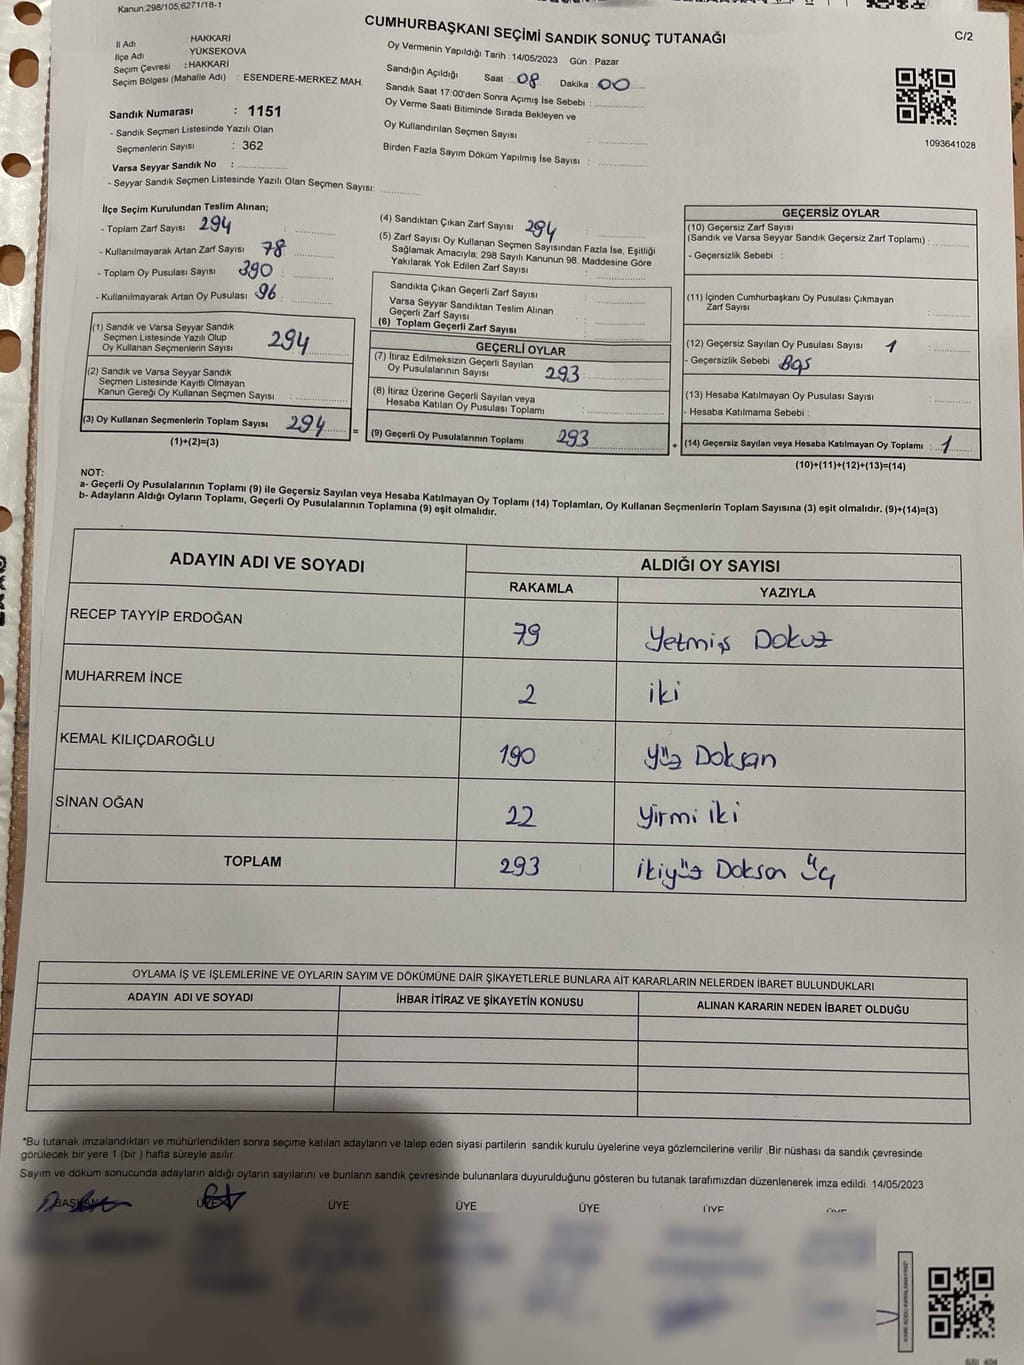 Kanun:298/105;6271/18-1
CUMHURBAŞKANI SEÇİMİ SANDIK SONUÇ TUTANAĞI
C/2
İl Adı : HAKKARİ
İlçe Adı : YÜKSEKOVA
Seçim Çevresi : HAKKARİ
Seçim Bölgesi (Mahalle Adı) : ESENDERE-MERKEZ MAH.
Sandık Numarası : 1151
- Sandık Seçmen Listesinde Yazılı Olan
Seçmenlerin Sayısı : 362
Varsa Seyyar Sandık No :
- Seyyar Sandık Seçmen Listesinde Yazılı Olan Seçmen Sayısı:
Oy Vermenin Yapıldığı Tarih : 14/05/2023 Gün : Pazar
Sandığın Açıldığı Saat : 08 Dakika : 00
Sandık Saat 17:00'den Sonra Açımış İse Sebebi :
Oy Verme Saati Bitiminde Sırada Bekleyen ve
Oy Kullandırılan Seçmen Sayısı :
Birden Fazla Sayım Döküm Yapılmış İse Sayısı :
1093641028
İlçe Seçim Kurulundan Teslim Alınan;
- Toplam Zarf Sayısı 294 :
- Kullanılmayarak Artan Zarf Sayısı 78 :
- Toplam Oy Pusulası Sayısı 390 :
- Kullanılmayarak Artan Oy Pusulası 96 :
(1) Sandık ve Varsa Seyyar Sandık
Seçmen Listesinde Yazılı Olup
Oy Kullanan Seçmenlerin Sayısı 294
(2) Sandık ve Varsa Seyyar Sandık
Seçmen Listesinde Kayıtlı Olmayan
Kanun Gereği Oy Kullanan Seçmen Sayısı :
(3) Oy Kullanan Seçmenlerin Toplam Sayısı 294
(1)+(2)=(3)
(4) Sandıktan Çıkan Zarf Sayısı 294 :
(5) Zarf Sayısı Oy Kullanan Seçmen Sayısından Fazla İse, Eşitliği
Sağlamak Amacıyla; 298 Sayılı Kanunun 98. Maddesine Göre
Yakılarak Yok Edilen Zarf Sayısı :
Sandıkta Çıkan Geçerli Zarf Sayısı :
Varsa Seyyar Sandıktan Teslim Alınan
Geçerli Zarf Sayısı :
(6) Toplam Geçerli Zarf Sayısı :
GEÇERLİ OYLAR
(7) İtiraz Edilmeksizin Geçerli Sayılan
Oy Pusulalarının Sayısı 293
(8) İtiraz Üzerine Geçerli Sayılan veya
Hesaba Katılan Oy Pusulası Toplamı :
= (9) Geçerli Oy Pusulalarının Toplamı 293
GEÇERSİZ OYLAR
(10) Geçersiz Zarf Sayısı
(Sandık ve Varsa Seyyar Sandık Geçersiz Zarf Toplamı) :
- Geçersizlik Sebebi :
(11) İçinden Cumhurbaşkanı Oy Pusulası Çıkmayan
Zarf Sayısı :
(12) Geçersiz Sayılan Oy Pusulası Sayısı 1 :
- Geçersizlik Sebebi : Boş
(13) Hesaba Katılmayan Oy Pusulası Sayısı :
- Hesaba Katılmama Sebebi :
+ (14) Geçersiz Sayılan veya Hesaba Katılmayan Oy Toplamı : 1
(10)+(11)+(12)+(13)=(14)
NOT:
a- Geçerli Oy Pusulalarının Toplamı (9) ile Geçersiz Sayılan veya Hesaba Katılmayan Oy Toplamı (14) Toplamları, Oy Kullanan Seçmenlerin Toplam Sayısına (3) eşit olmalıdır. (9)+(14)=(3)
b- Adayların Aldığı Oyların Toplamı, Geçerli Oy Pusulalarının Toplamına (9) eşit olmalıdır.
ADAYIN ADI VE SOYADI ALDIĞI OY SAYISI
RAKAMLA YAZIYLA
RECEP TAYYİP ERDOĞAN 79 Yetmiş Dokuz
MUHARREM İNCE 2 iki
KEMAL KILIÇDAROĞLU 190 Yüz Doksan
SİNAN OĞAN 22 Yirmi iki
TOPLAM 293 ikiyüz Doksan Üç
OYLAMA İŞ VE İŞLEMLERİNE VE OYLARIN SAYIM VE DÖKÜMÜNE DAİR ŞİKAYETLERLE BUNLARA AİT KARARLARIN NELERDEN İBARET BULUNDUKLARI
ADAYIN ADI VE SOYADI İHBAR İTİRAZ VE ŞİKAYETİN KONUSU ALINAN KARARIN NEDEN İBARET OLDUĞU
*Bu tutanak imzalandıktan ve mühürlendikten sonra seçime katılan adayların ve talep eden siyasi partilerin sandık kurulu üyelerine veya gözlemcilerine verilir .Bir nüshası da sandık çevresinde
görülecek bir yere 1 (bir ) hafta süreyle asılır
Sayım ve döküm sonucunda adayların aldığı oyların sayılarını ve bunların sandık çevresinde bulunanlara duyurulduğunu gösteren bu tutanak tarafımızdan düzenlenerek imza edildi. 14/05/2023
BAŞKAN ÜYE ÜYE ÜYE ÜYE ÜYE ÜYE